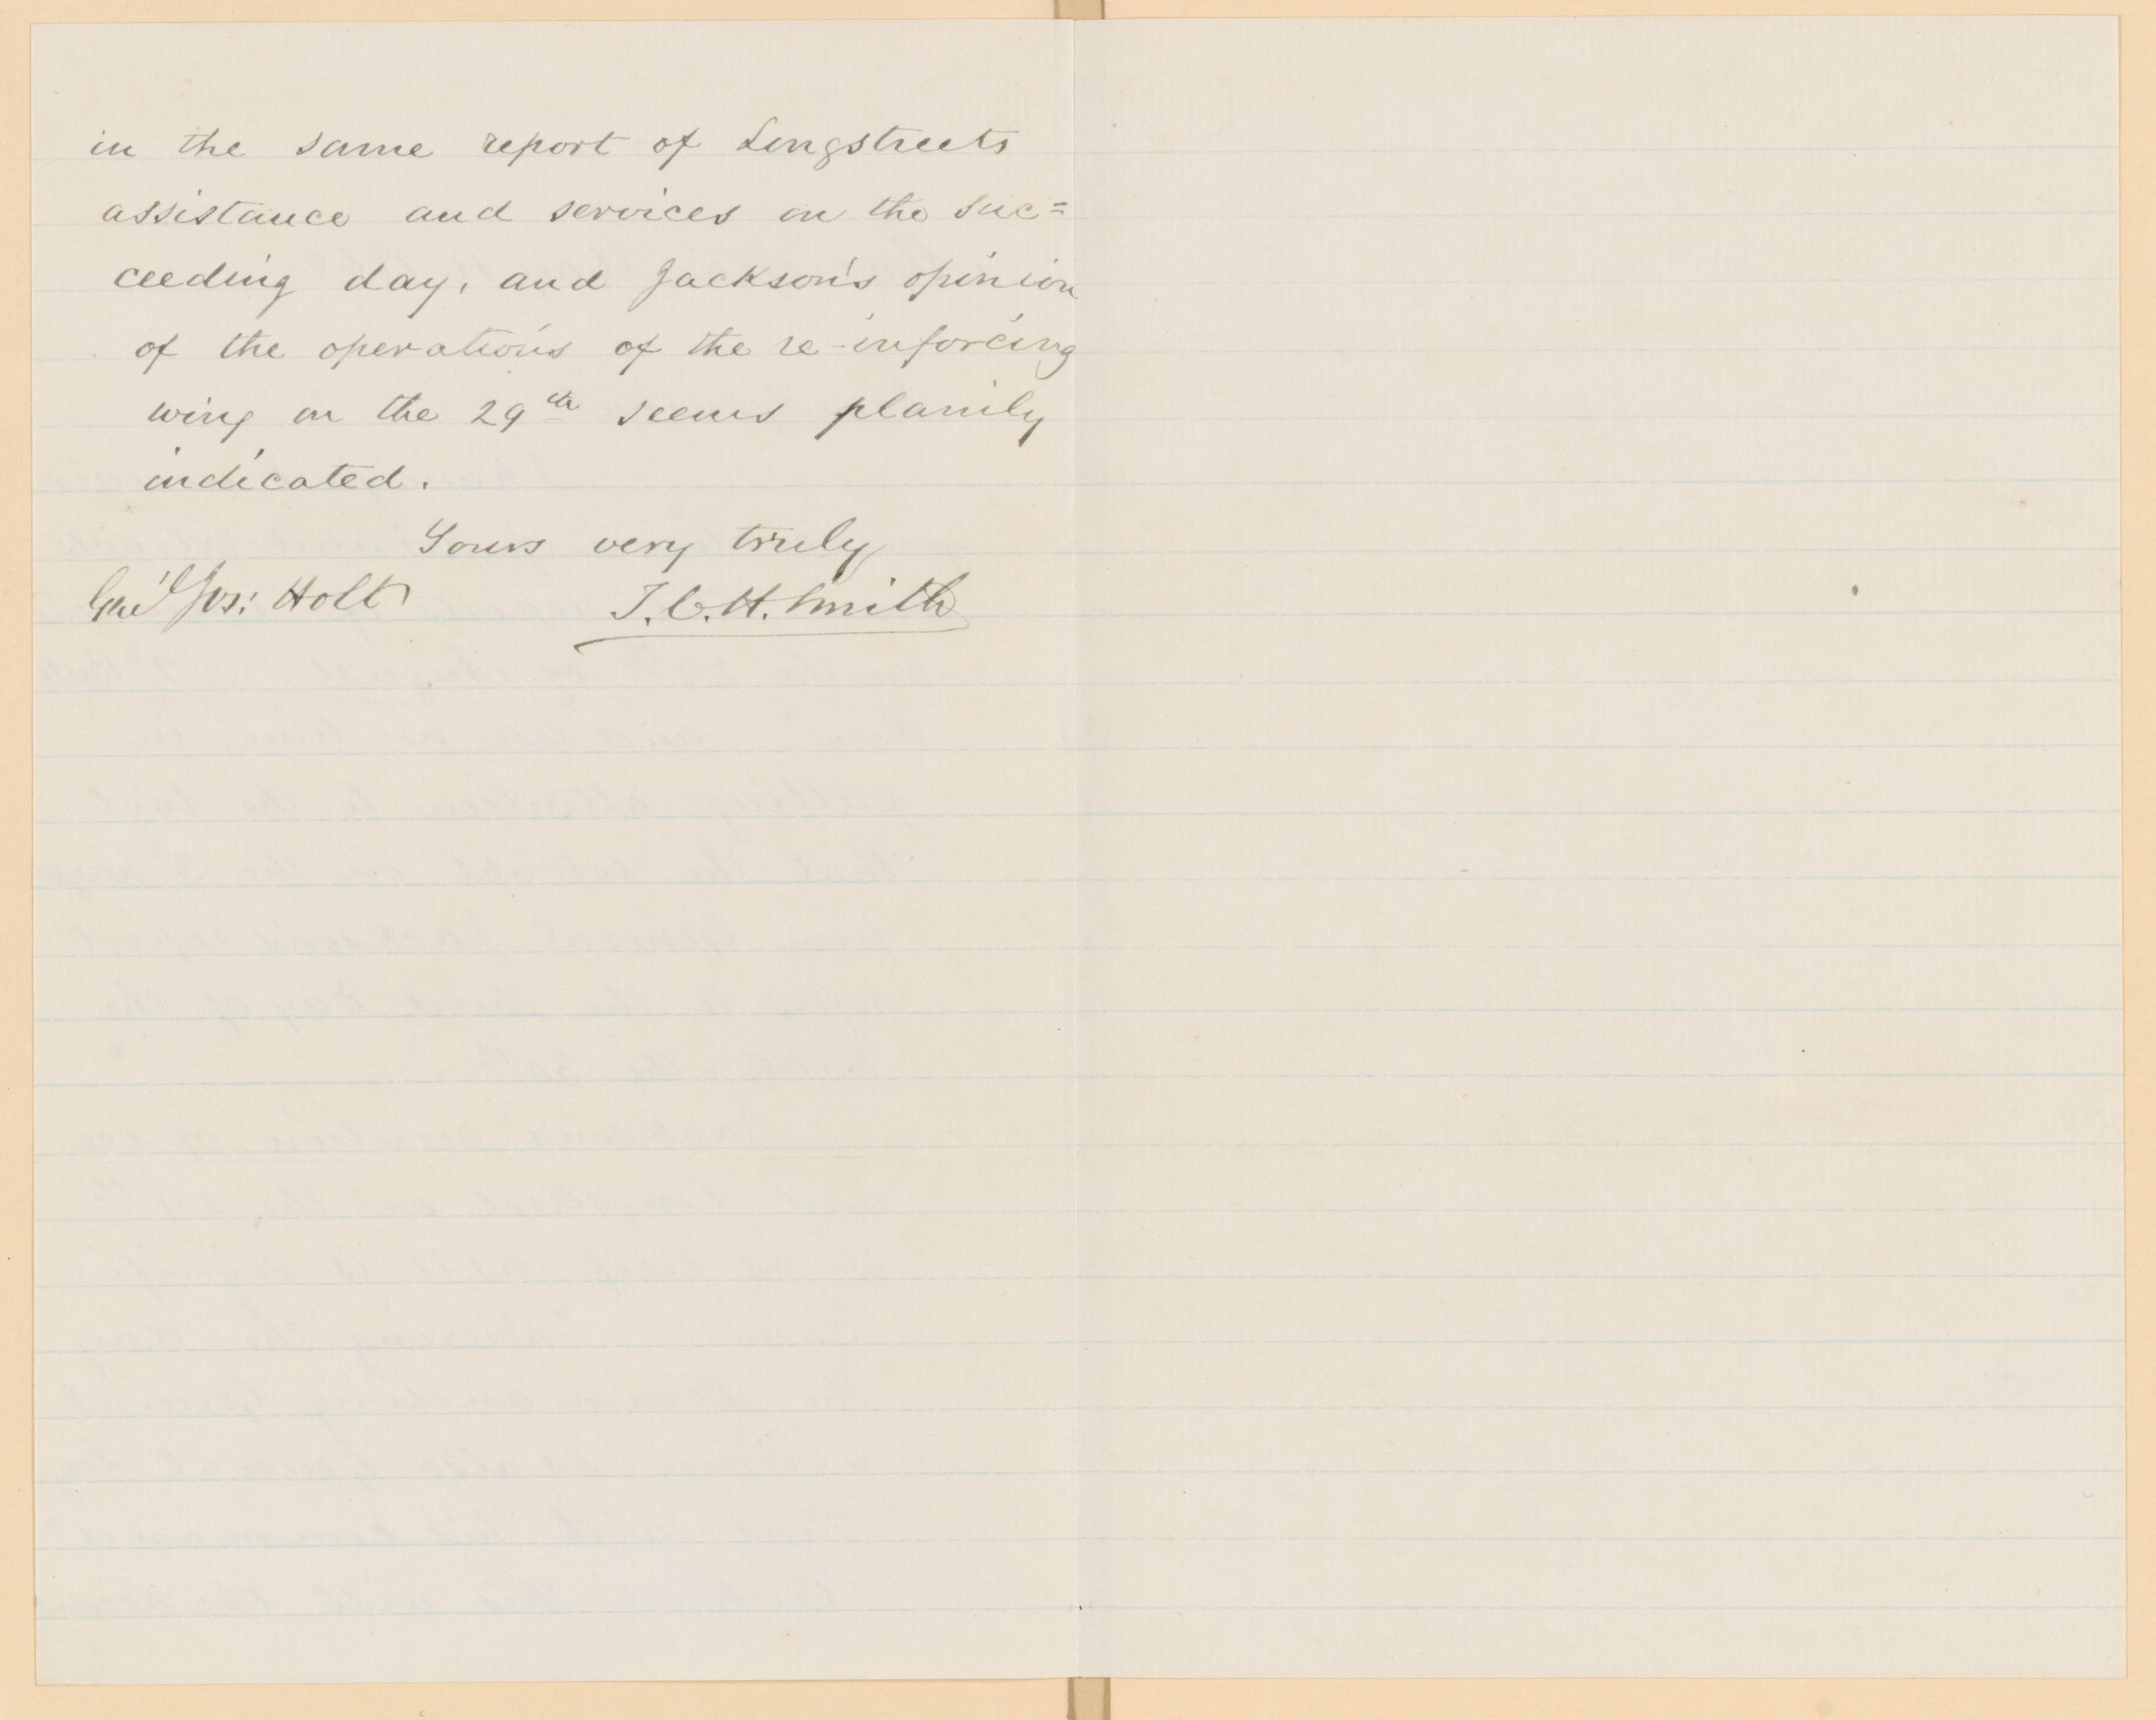 in the same report of Longstreets
assistance and services on the suc=
ceeding day, and Jackson's opinion
of the operations of the re-inforcing
wing on the 29th seems plainly
indicated.
Yours very truly
Gen'l Jos: Holt T. C. H. Smith